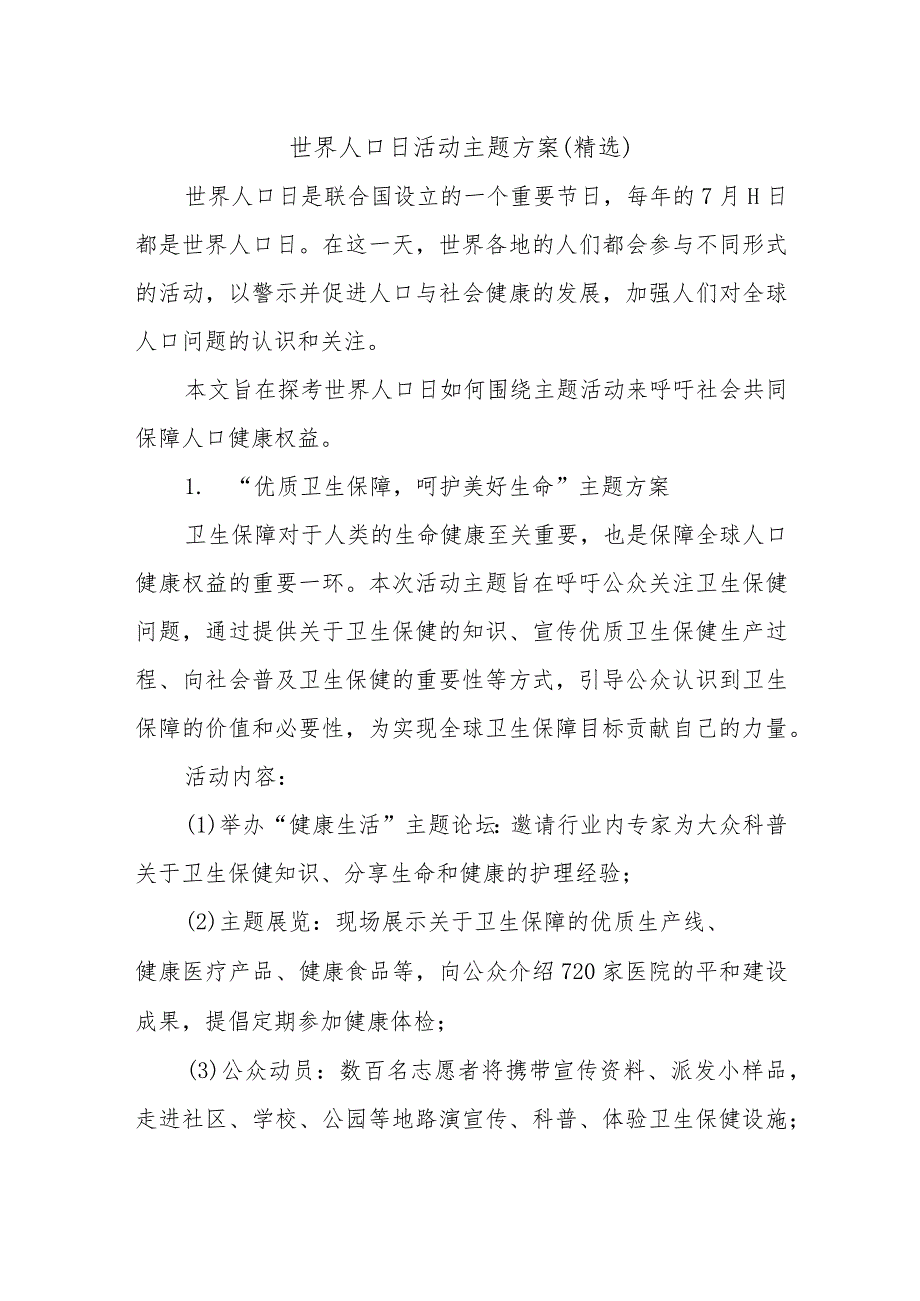 世界人口日活动主题方案(精选)
世界人口日是联合国设立的一个重要节日，每年的7月H日
都是世界人口日。在这一天，世界各地的人们都会参与不同形式
的活动，以警示并促进人口与社会健康的发展，加强人们对全球
人口问题的认识和关注。
本文旨在探考世界人口日如何围绕主题活动来呼吁社会共同
保障人口健康权益。
1. “优质卫生保障，呵护美好生命”主题方案
卫生保障对于人类的生命健康至关重要，也是保障全球人口
健康权益的重要一环。本次活动主题旨在呼吁公众关注卫生保健
问题，通过提供关于卫生保健的知识、宣传优质卫生保健生产过
程、向社会普及卫生保健的重要性等方式，引导公众认识到卫生
保障的价值和必要性，为实现全球卫生保障目标贡献自己的力量。
活动内容：
(1)举办“健康生活”主题论坛：邀请行业内专家为大众科普
关于卫生保健知识、分享生命和健康的护理经验；
(2)主题展览：现场展示关于卫生保障的优质生产线、
健康医疗产品、健康食品等，向公众介绍720家医院的平和建设
成果，提倡定期参加健康体检；
(3)公众动员：数百名志愿者将携带宣传资料、派发小样品，
走进社区、学校、公园等地路演宣传、科普、体验卫生保健设施；